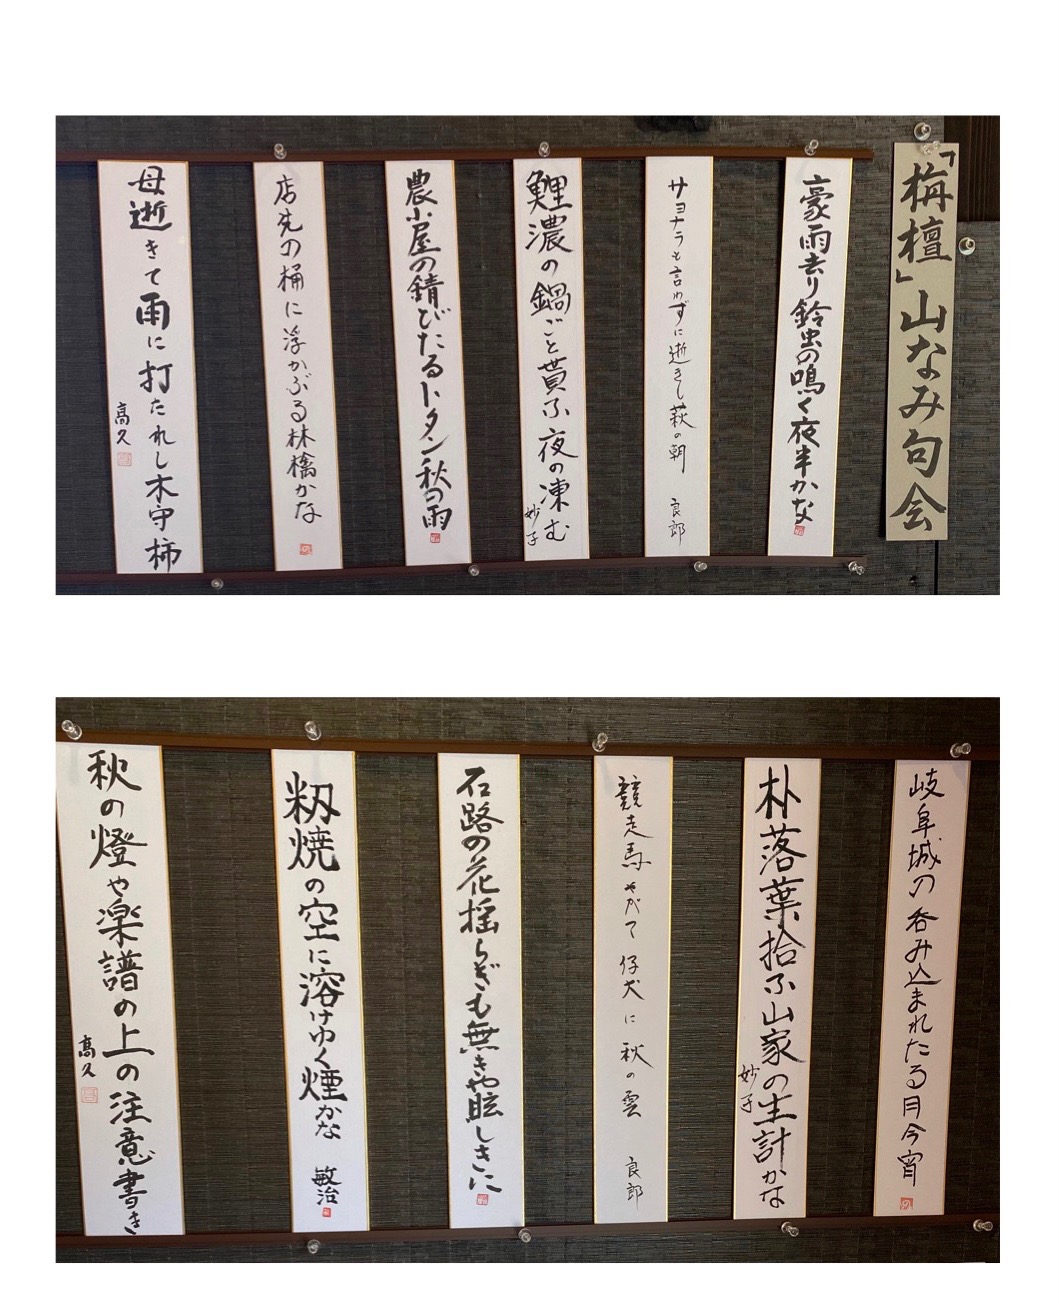 「栴檀」山なみ句会
豪雨去り鈴虫の鳴く夜半かな
サヨナラも言わずに逝きし萩の朝 良郎
鯉濃の鍋ごと貰ふ夜の凍む 妙子
農小屋の錆びたるトタン秋の雨
店先の桶に浮かぶる林檎かな
母逝きて雨に打たれし木守柿 高久
岐阜城の呑み込まれたる月今宵
朴落葉拾ふ山家の生計かな 妙子
競走馬やがて仔犬に秋の雲 良郎
石路の花揺らぎも無きや眩しきに
籾焼の空に溶けゆく煙かな 敏治
秋の燈や楽譜の上の注意書き 高久